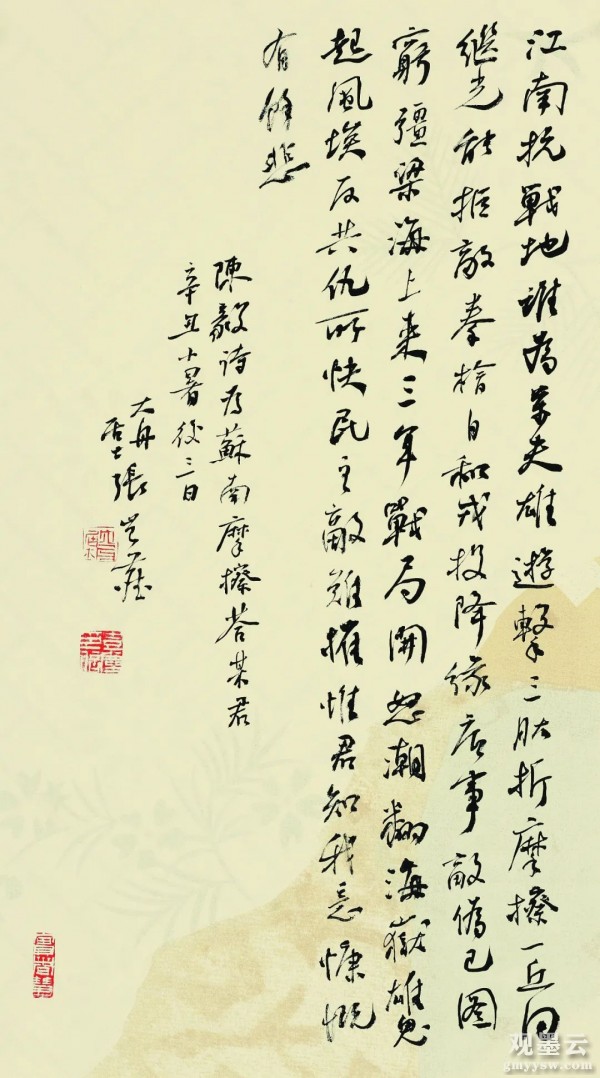 江南抗戰地誰為萬夫雄遊擊三肱折摩擦一丘同
繼光能拒敵秦檜自和戎投降緣底事敵偽已圖
窮彊梁海上來三年戰局開怒潮翻海嶽雄鬼
起風埃反共仇所快民主敵難摧惟君知我意慷慨
有餘悲
陳毅詩為蘇南摩擦答某君
辛丑小暑後三日
大舟
居士張
观墨云
gmyysw.com